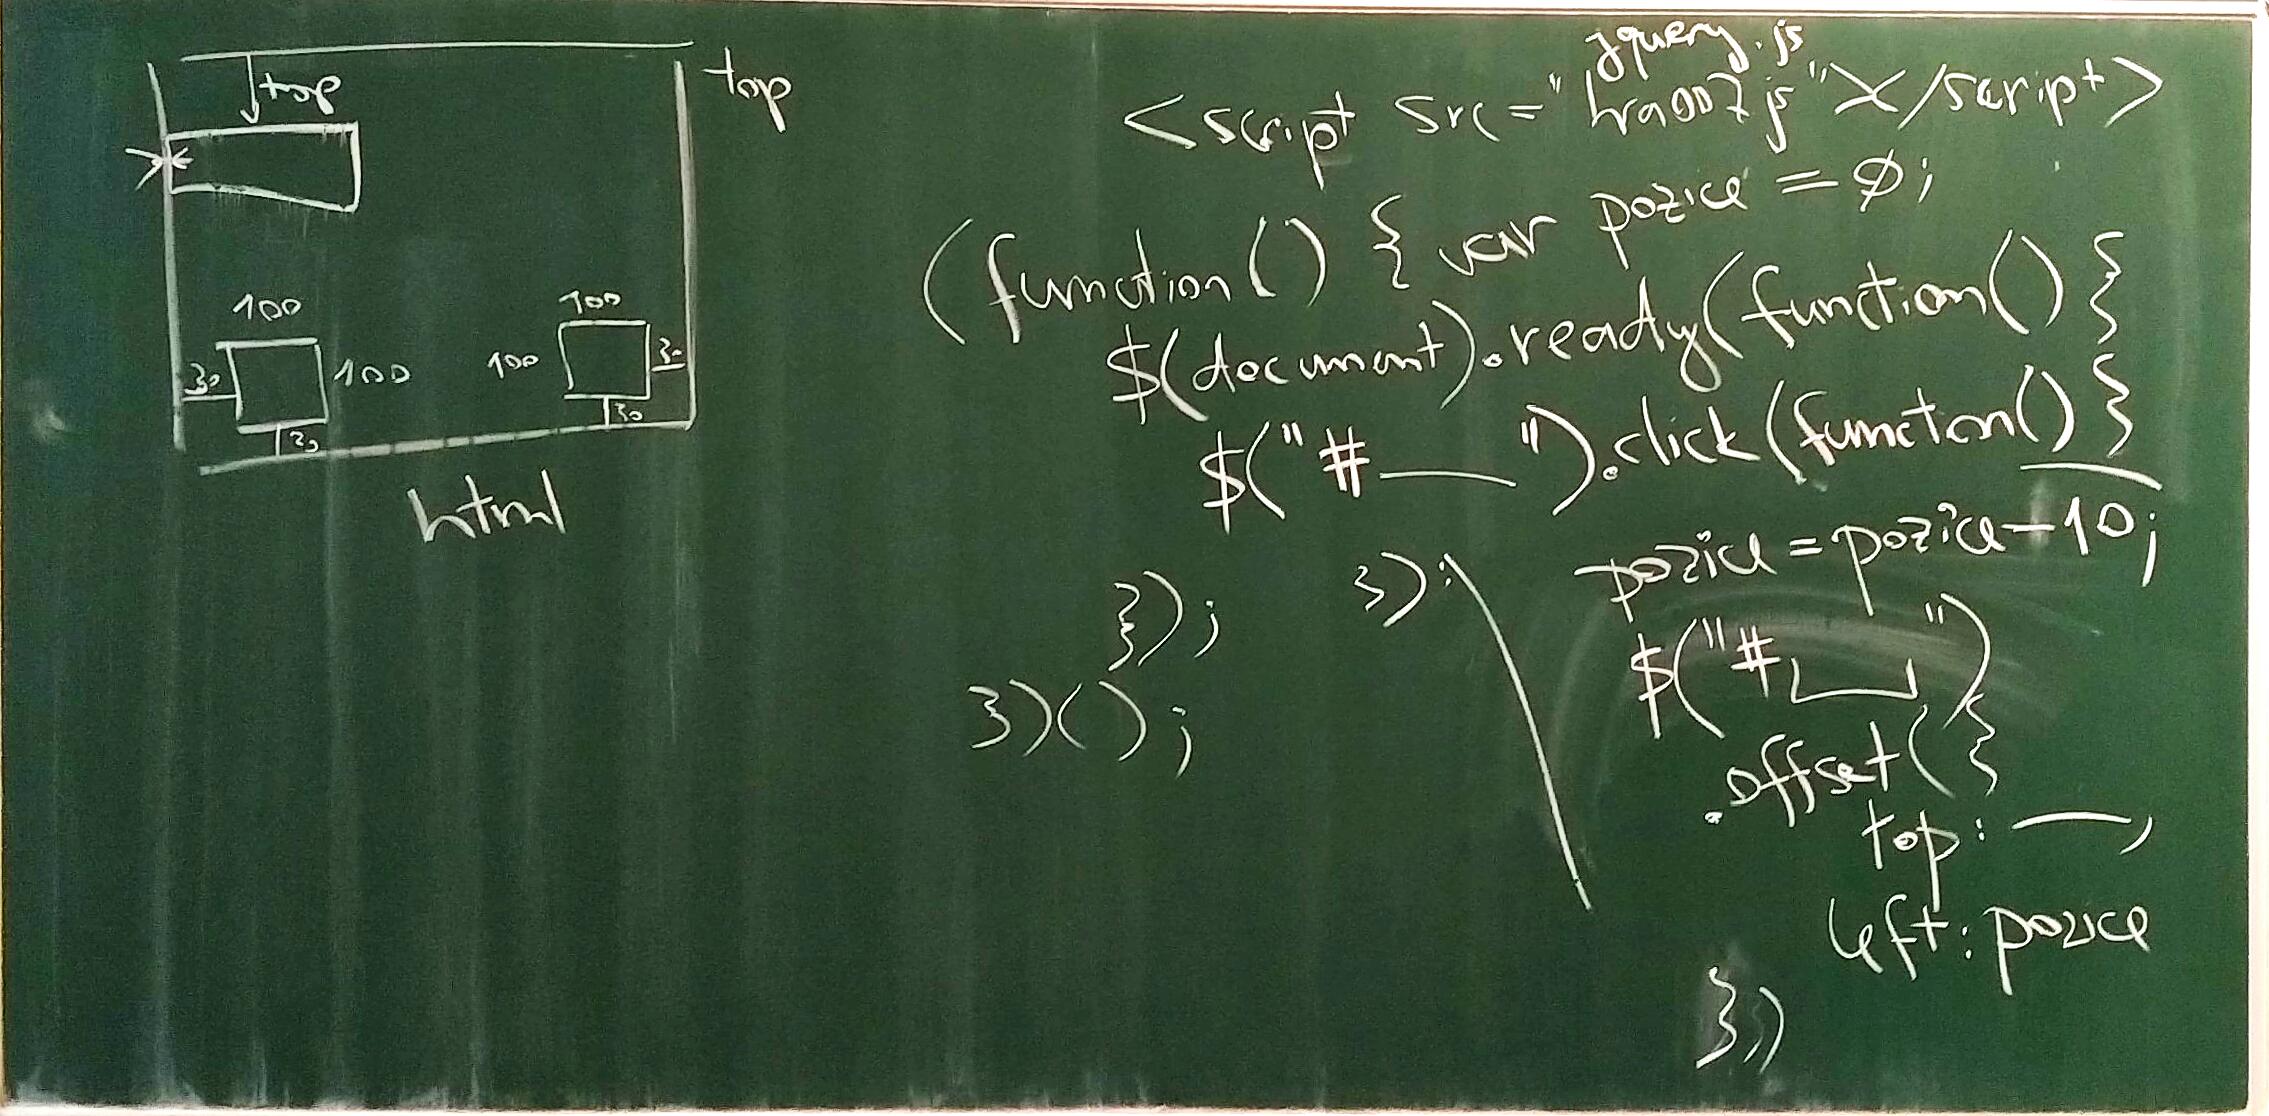 top
top
100
100
30
30
100
100
30
30
html
jquery.js
<script src="hra007.js"></script>
(function() { var pozice = 0;
$(document).ready(function() {
$("#___").click(function() {
pozice = pozice-10;
$("#___")
.offset({
top: ___,
left: pozice
})
});
});
})();